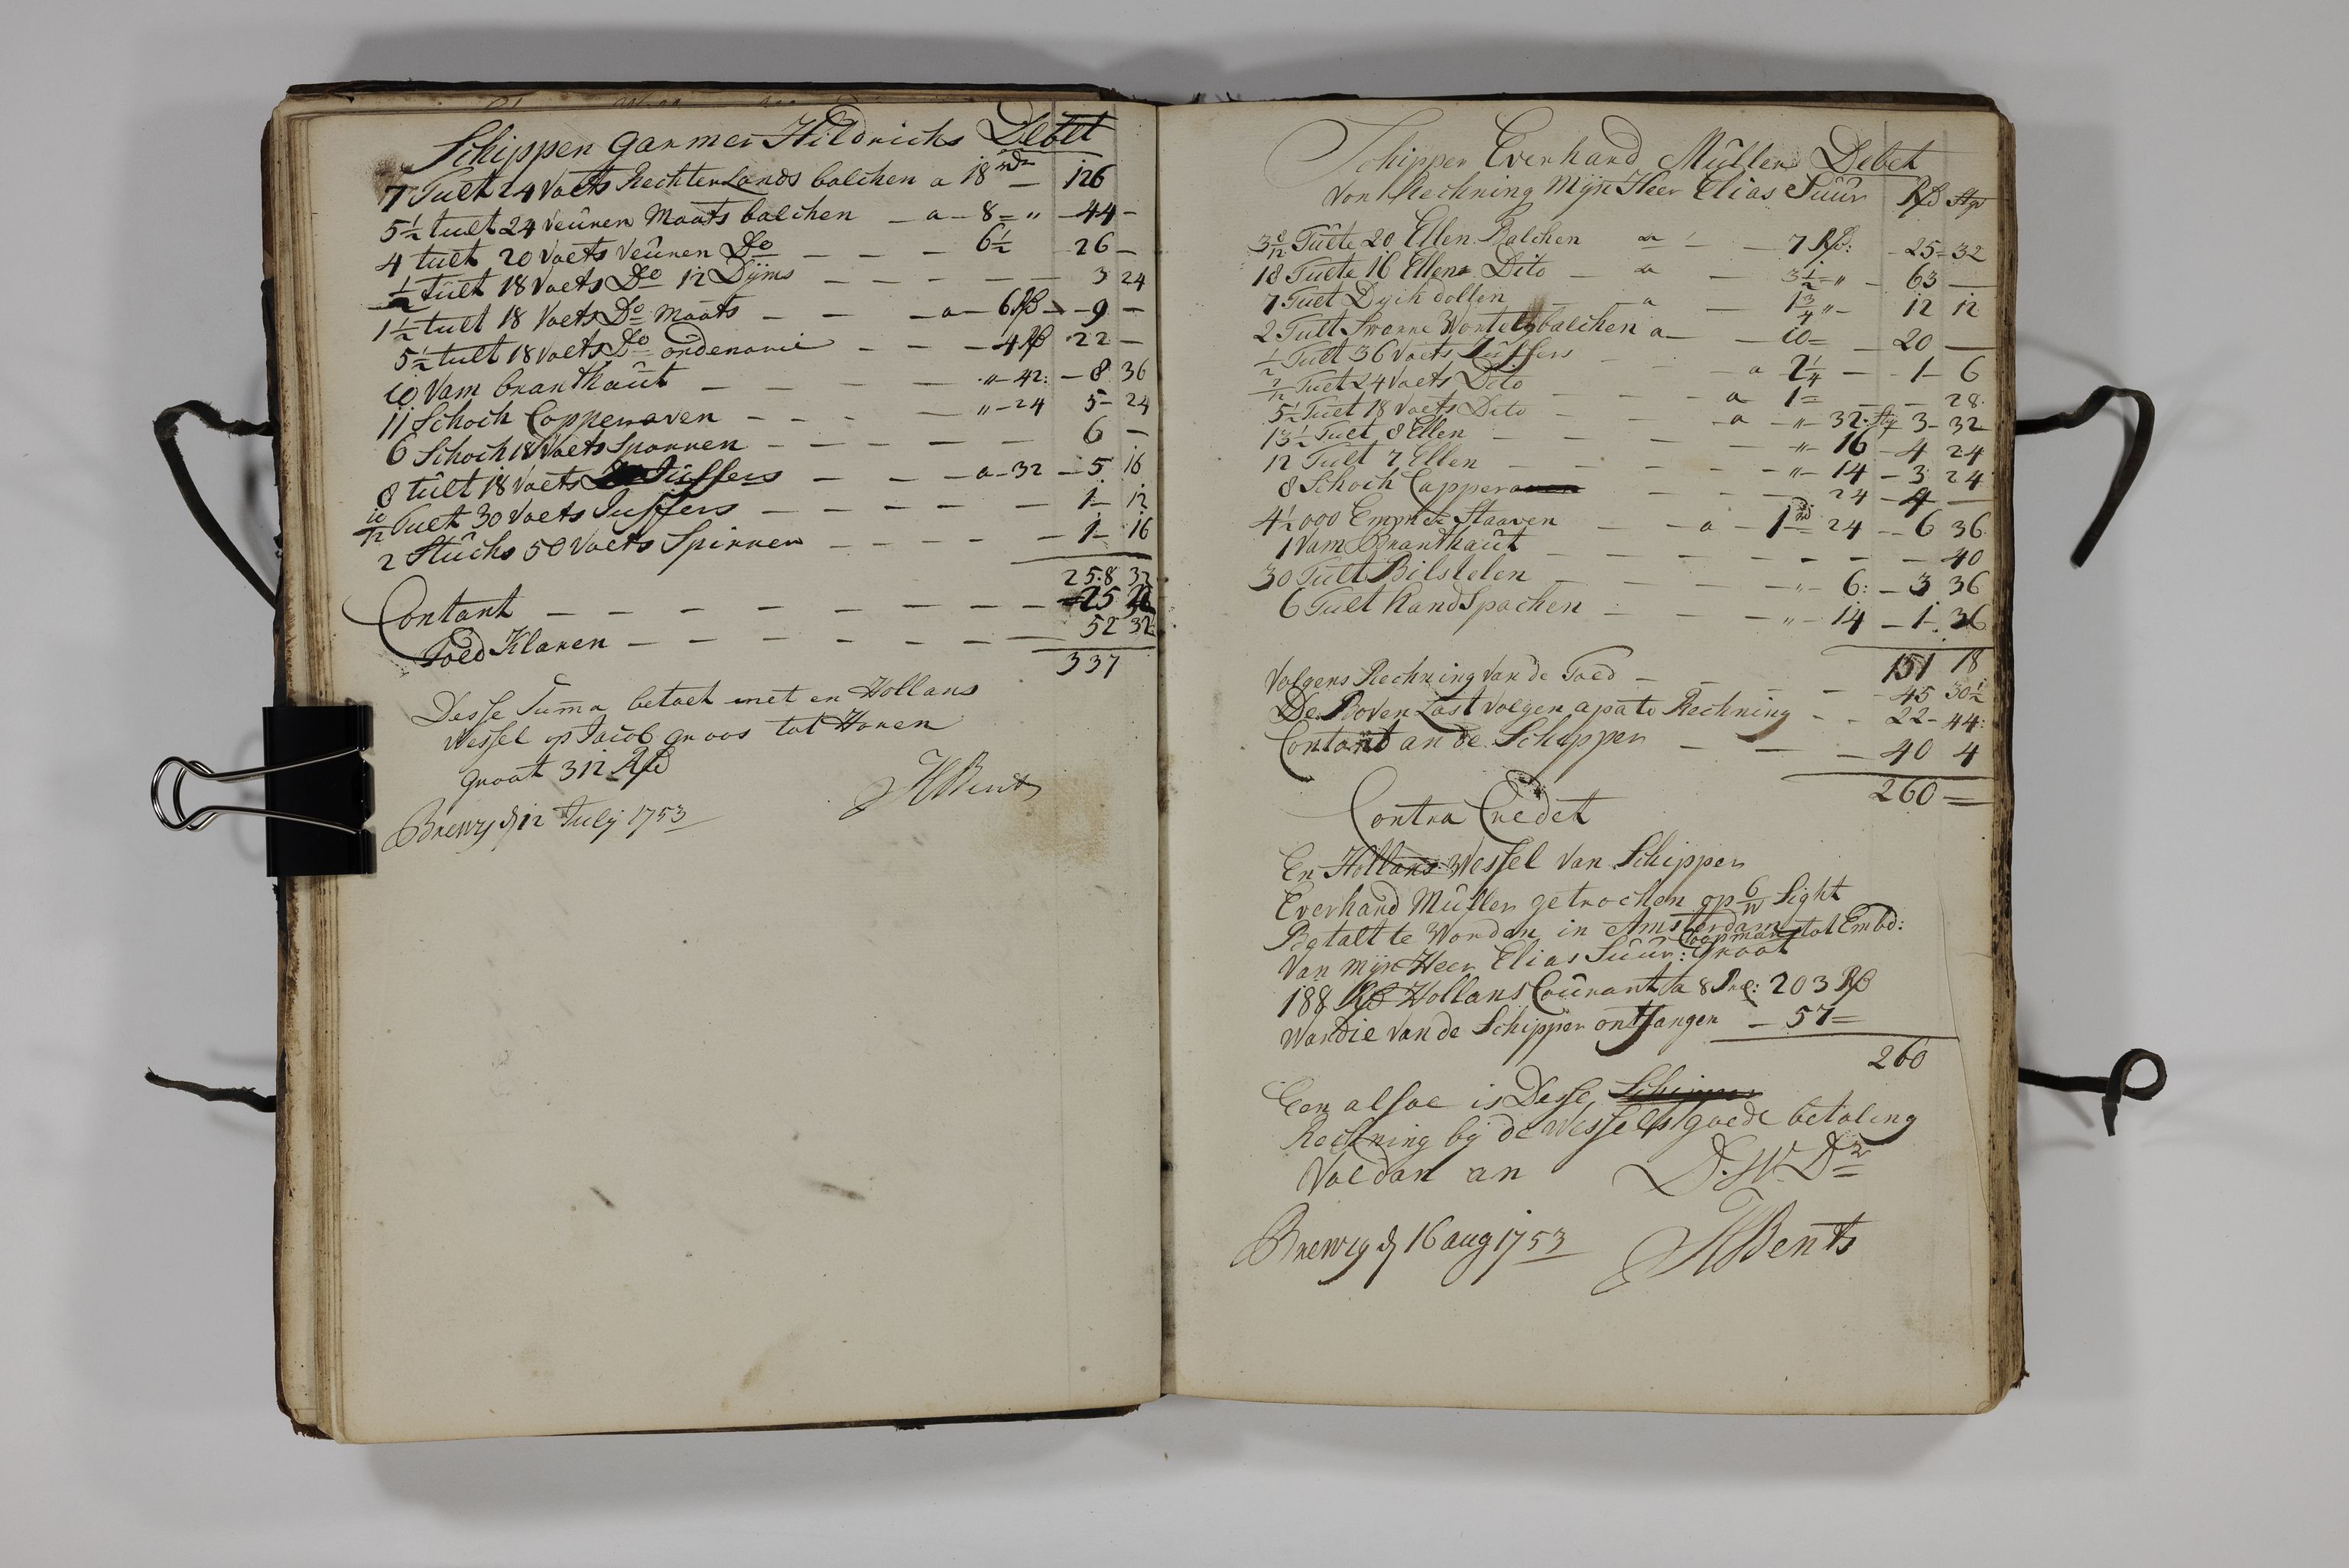 Schipper garmer Hildrichs Debet
7 Tult 24 Voets Rechterlands balchen a 18 rdr — 126
5½ tult 24 Veuren Maats balchen — a — 8 = " — 44 —
4 tult 20 Voets Veuren Do — — — 6½ 26 —
½ Tult 18 Voets Do 12 Dijms — — — — — 3 24
1½ tult 18 Voets Do Maats — — — a — 6 Rd — 9 —
5½ tult 18 Voets Do ordenarie — — — 4 Rd 22 —
10 Vam branthaut — — — — " — 42: — 8 36
11 Schoch Copperaven — — — — " — 24 5 — 24
6 Schoch 18 Voets Sparren — — — — — — 6 —
8 tult 18 Voets Juffers — — — a — 32 — 5 16
10/12 Tult 30 Voets Juffers — — — — — — 1 — 12
2 Stuchs 50 Voets Spirren — — — — — 1 — 16
258 32
Contant — — — — — — — — 25
Toed Klaren — — — — — — — 52 32
337
Desse Suma betaelt met en Hollans
Wessel op Jacob groos tot Horen
groat 312 Rd
HBents
Brewg d 12 July 1753
Schipper Everhard Muller Debet
Von Rechning Mijn Heer Elias Suur Rd Stv
3 8/12 Tulte 20 Ellen Balchen a — 7 Rd: — 25 = 32
18 Tulte 16 Ellens Dito — a — 3½ = " — 63 —
7 Tult Dyikdollen — a — 1¾ " — 12 12
2 Tult Svarre Wortelsbalchen a — — 10 = — 20 —
½ Tult 36 Voets Juffers — — a 2¼ — — 1 — 6
7/12 Tult 24 Voets Dito — — — a 1 = — — 28
5½ Tult 18 Voets Dito — — — a — " — 32 Stv 3 — 32
13½ Tult 8 Ellen — — — — " — 16 — 4 24
12 Tult 7 Ellen — — — — — " — 14 — 3 24
8 Schoch Cappera — — — — 24 — 4 —
4½000 Emmer Staaven — — a — 1 rd 24 — 6 36
1 Vam Branthaut — — — — — — — 40
30 Tult Bilstelen — — — — " 6: — 3 36
6 Tult handspachen — — — — " — 14 — 1 — 36
151 18
Volgens Rechning van de Toed — — — — 45 30½
De Boven Last Volgen apate Rechning — — 22 — 44:
Contant an de Schipper — — — 40 4
260 =
Contra Credet
En Hollans Wessel Van Schipper
Everhard Muller getrochen op 6/w Sight
Betalt te Worden in Amsterdam
Van Mijn Heer Elias Suur: Coopman tot Embd: Groat
188 Rd Hollans Courant a 8 Prc: 203 Rd
Wardie van de Schipper ontfangen — 57 =
260
Een alsoe is Desse Schipper
Rechning bij de Wessels goede betaling
Voldan an D.W.Dr
Brewig d 16 aug 1753 HBents